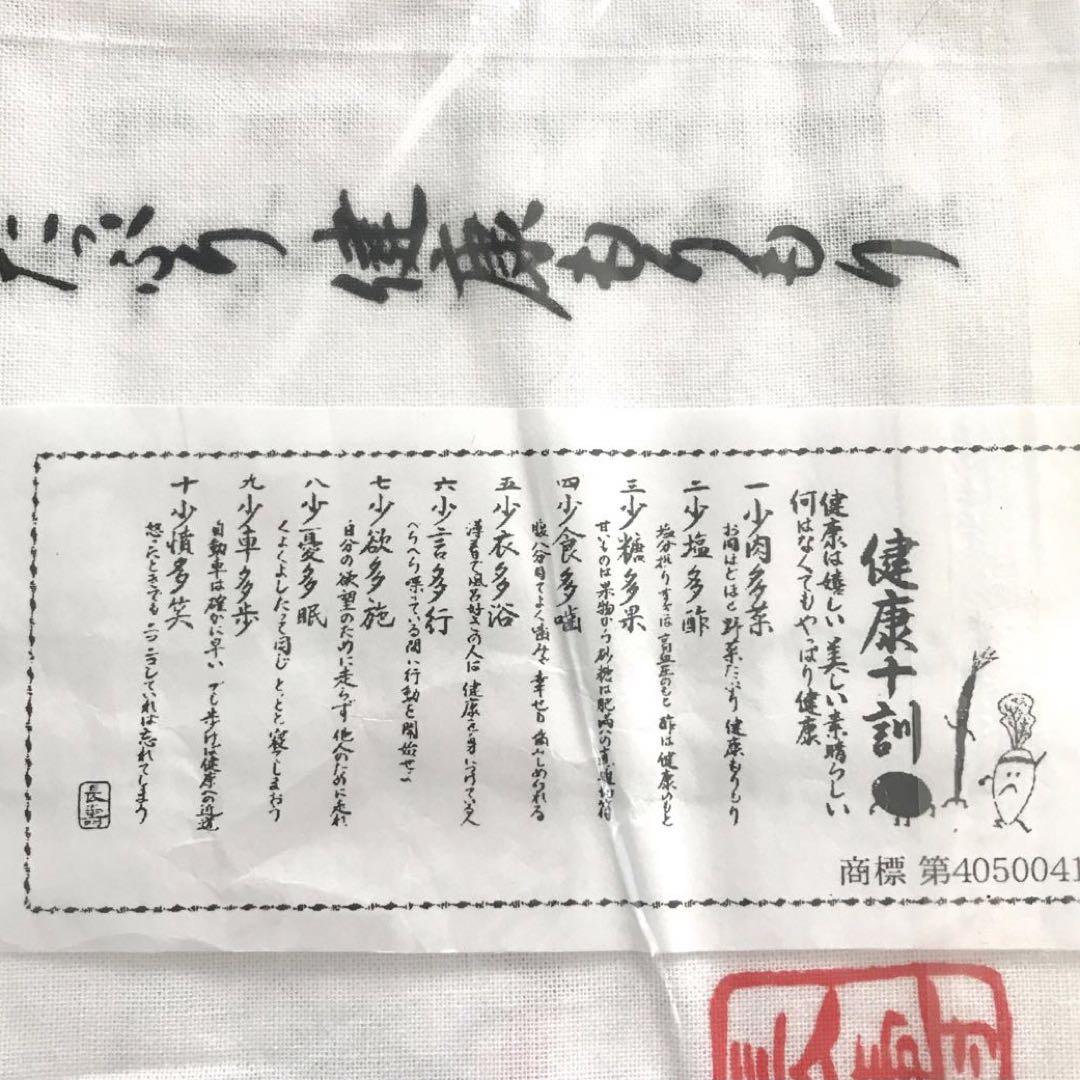 たっぷり 健康もりもり
健康十訓
健康は嬉しい 美しい 素晴らしい
何はなくてもやっぱり健康
一 少肉多菜
お肉はほどほど 野菜たっぷり 健康もりもり
二 少塩多酢
塩分摂りすぎは高血圧のもと 酢は健康のもと
三 少糖多果
甘いものは果物から 砂糖は肥満への直通切符
四 少食多噛
腹八分目でよく噛めば 幸せも噛みしめられる
五 少衣多浴
薄着で風呂好きの人は 健康を身につけている人
六 少言多行
べらべら喋っている間に行動を開始せよ
七 少欲多施
自分の欲望のために走らず 他人のために走れ
八 少憂多眠
くよくよしたって同じ とっとと寝てしまおう
九 少車多歩
自動車は確かに早い でも歩けば健康への近道
十 少憤多笑
怒ったときでも ニコニコしていれば忘れてしまう
長寿
商標 第4050041